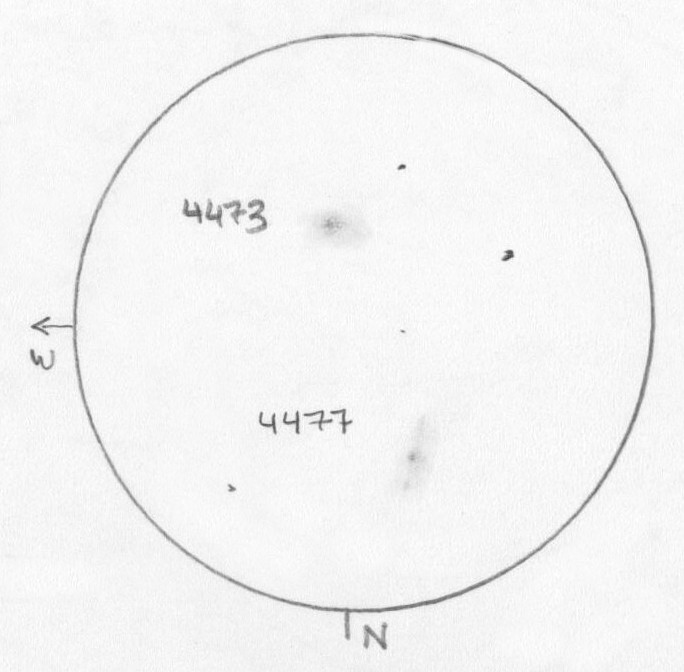 4473
W
4477
N